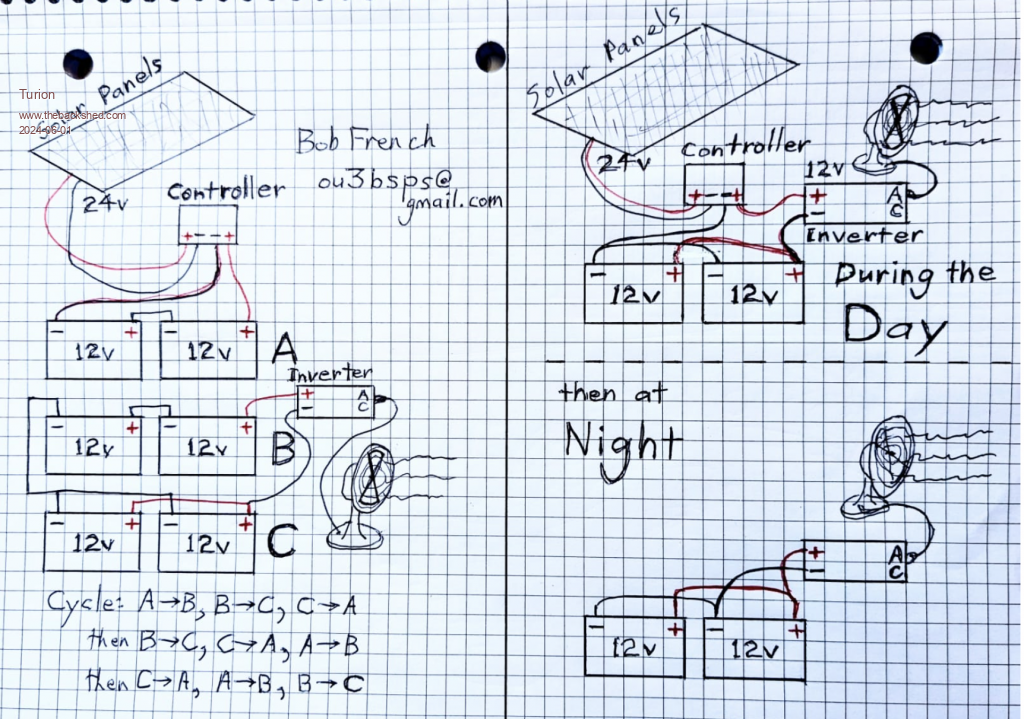 Solar Panels
Turion
www.thebackshed.com
2024-06-01
24v
Controller
+ - - +
Bob French
ou3bsps@
gmail.com
- + - +
12v 12v
A
Inverter
+ A
- C
- + - +
12v 12v
B
- + - +
12v 12v
C
Cycle: A→B, B→C, C→A
then B→C, C→A, A→B
then C→A, A→B, B→C
Solar Panels
24v
Controller
+ - - +
12v
+ A
- C
Inverter
- + - +
12v 12v
During the
Day
then at
Night
+ A
- C
- + - +
12v 12v